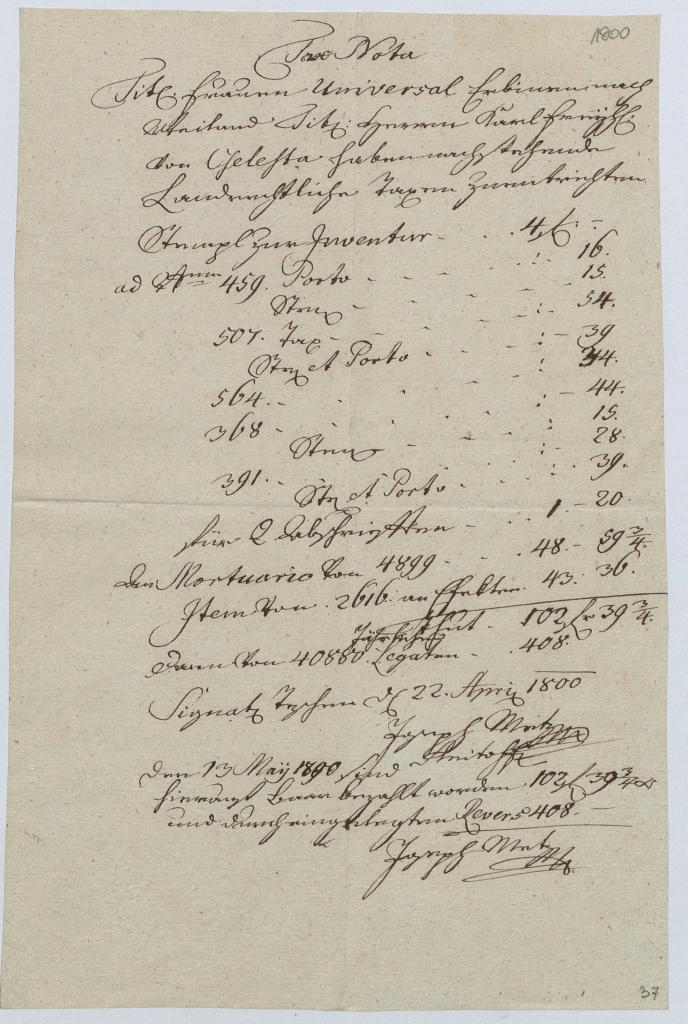 1800
Tax Nota
Titl. Frauen Universal Erbinen nach
Weiland Titl: Herrn Karl Freyhl.
von Celesta haben nachstehende
Landrechtliche Taxen zu entrichten
Stempl zur Inventur - . . 4 f. -
ad Num 459. Porto - - - : 16.
Stem - - - : 15.
507. Tax - - - : - 54.
Stm et Porto - : 39
564. - . . : - 34.
368 - . . : - 44.
Stem - - : 15.
391. - . . : 28.
Stm et Porto - . : 39.
für 2 Abschriften - . . 1. - 20
An Mortuario von 4899 - . 48. - 59 3/4.
Item von 2616. an Effekten 43. 36.
thut - 102 f 39 3/4.
Dann von 40880. Jährlichen Legaten - . 408.
Signat Teschen d 22. April 1800
Joseph Metz
den 13 Maÿ 1800 sind
hierauf baar bezahlt worden 102 f 39 3/4 x
und durch eingelegten Revers 408. -
Joseph Metz
37